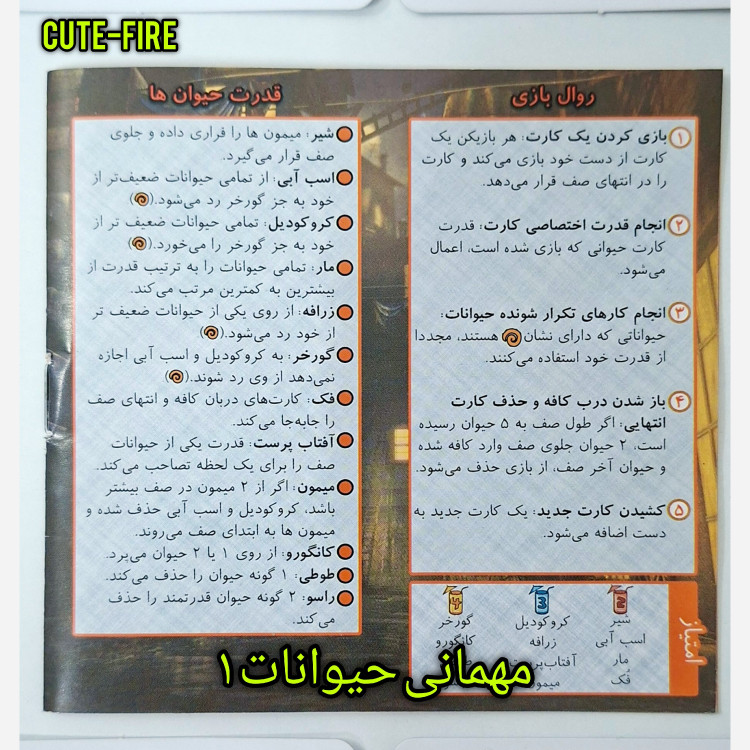 CUTE-FIRE
روال بازی
۱ بازی کردن یک کارت: هر بازیکن یک
کارت از دست خود بازی می‌کند و کارت
را در انتهای صف قرار می‌دهد.
۲ انجام قدرت اختصاصی کارت: قدرت
کارت حیوانی که بازی شده است، اعمال
می‌شود.
۳ انجام کارهای تکرار شونده حیوانات:
حیواناتی که دارای نشان هستند، مجددا
از قدرت خود استفاده می‌کنند.
۴ باز شدن درب کافه و حذف کارت
انتهایی: اگر طول صف به ۵ حیوان رسیده
است، ۲ حیوان جلوی صف وارد کافه شده
و حیوان آخر صف، از بازی حذف می‌شود.
۵ کشیدن کارت جدید: یک کارت جدید به
دست اضافه می‌شود.
امتیاز
۲ ۳ ۴
شیر کروکودیل گورخر
اسب آبی زرافه کانگورو
مار آفتاب‌پرست
فُک میمون
قدرت حیوان ها
شیر: میمون ها را فراری داده و جلوی
صف قرار می‌گیرد.
اسب آبی: از تمامی حیوانات ضعیف‌تر از
خود به جز گورخر رد می‌شود.()
کروکودیل: تمامی حیوانات ضعیف تر از
خود به جز گورخر را می‌خورد.()
مار: تمامی حیوانات را به ترتیب قدرت از
بیشترین به کمترین مرتب می‌کند.
زرافه: از روی یکی از حیوانات ضعیف تر
از خود رد می‌شود.()
گورخر: به کروکودیل و اسب آبی اجازه
نمی‌دهد از وی رد شوند.()
فک: کارت‌های دربان کافه و انتهای صف
را جابه‌جا می‌کند.
آفتاب پرست: قدرت یکی از حیوانات
صف را برای یک لحظه تصاحب می‌کند.
میمون: اگر از ۲ میمون در صف بیشتر
باشد، کروکودیل و اسب آبی حذف شده و
میمون ها به ابتدای صف می‌روند.
کانگورو: از روی ۱ یا ۲ حیوان می‌پرد.
طوطی: ۱ گونه حیوان را حذف می‌کند.
راسو: ۲ گونه حیوان قدرتمند را حذف
می کند.
مهمانی حیوانات۱